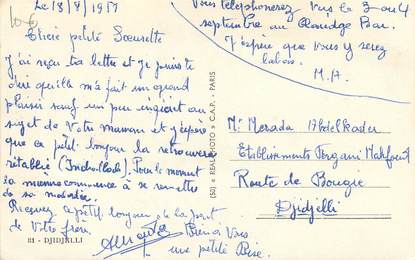 Le 18/8/1957
10€
Chère petite Soeurette
J'ai reçu ta lettre et je puis te
dire qu'elle m'a fait un grand
plaisir sauf un peu inquiet au
sujet de Votre maman et j'espère
que ce petit bonjour la retrouvera
rétablie (Inchallah). Pour le moment
la mienne commence à se remettre
de sa maladie.
Recevez le petit bonjour de la part
de Votre frère.
Bien à Vous
une petite Bise.
81 - DJIDJELLI
(50) « REAL-PHOTO » C.A.P. - PARIS
Vous téléphonerez Vers le 3 ou 4
septembre au Bar.
J'espère que Vous y serez
M.A.
Mr Merada Abdelkader
Etablissements Fergani Mahfoud
Route de Bougie
Djidjelli